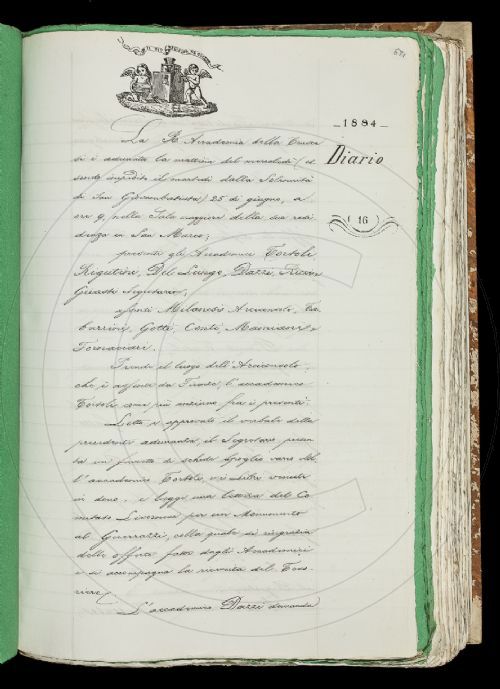 671
1884
Diario
(16)
La R. Accademia della Crusca
si è adunata la mattina del mercoledì (es
sendo impedito il martedì dalla Solennità
di San Giovambatista) 25 di giugno, a
ore 9, nella Sala maggiore della sua resi
denza in San Marco;
presenti gli Accademici Tortoli,
Rigutini, Del Lungo, Dazzi, Rigutini
Guasti Segretario;
assenti Milanesi Arciconsolo, Ta
barrini, Gotti, Conti,
Prende il luogo dell'Arciconsolo,
che è assente da Firenze, l'accademico
Tortoli come più anziano fra i presenti.
Letto e approvato il verbale della
precedente adunanza, il Segretario presen
ta un pacchetto di schede spoglio varie del
l'accademico Tortoli, e i libri venuti
in dono; e legge una lettera del Co
mitato Livornese per un Monumento
al Guerrazzi, colla quale si ringrazia
delle offerte fatte dagli Accademici
e si accompagna la ricevuta del Teso-
riere.
L'accademico Dazzi domanda